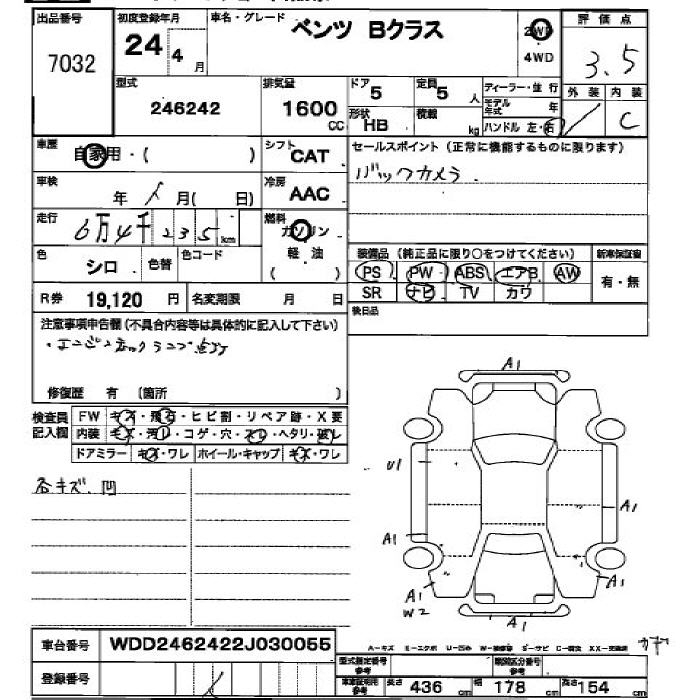 出品番号 初度登録年月 車名・グレード 評価点
7032 24年 4月 ベンツ Bクラス 2WD 4WD 3.5
型式 排気量 ドア 定員 ディーラー・並行 外装 内装
246242 1600cc 5 5人 モデル年式 年 C
形状 HB 積載 kg ハンドル 左・右
車歴 自家用・( ) シフト CAT セールスポイント (正常に機能するものに限ります)
車検 年 月( 日) 冷房 AAC バックカメラ
走行 6万4千235km 燃料 ガソリン 軽油 ( )
色 シロ 色替 色コード 装備品 (純正品に限り○をつけてください) 新車保証書
PS PW ABS エアB AW 有・無
R券 19,120円 名変期限 月 日 SR ナビ TV カワ
注意事項申告欄(不具合内容等は具体的に記入して下さい) 後日品
・エンジンチェックランプ点灯
修復歴 有 (箇所 )
検査員記入欄 FW キズ・飛石・ヒビ割・リペア跡・X要
内装 キズ・汚レ・コゲ・穴・スレ・ヘタリ・破レ
ドアミラー キズ・ワレ ホイール・キャップ キズ・ワレ
各キズ、凹
A1
U1
A1
A1
A1
W2
A1
A1
車台番号 WDD2462422J030055
A-キズ E-エクボ U-凹み W-補修跡 S-サビ C-腐食 XX-交換済
登録番号 型式指定番号 参考 類別区分番号 参考
車庫証明用 参考 長さ 436cm 幅 178cm 高さ 154cm